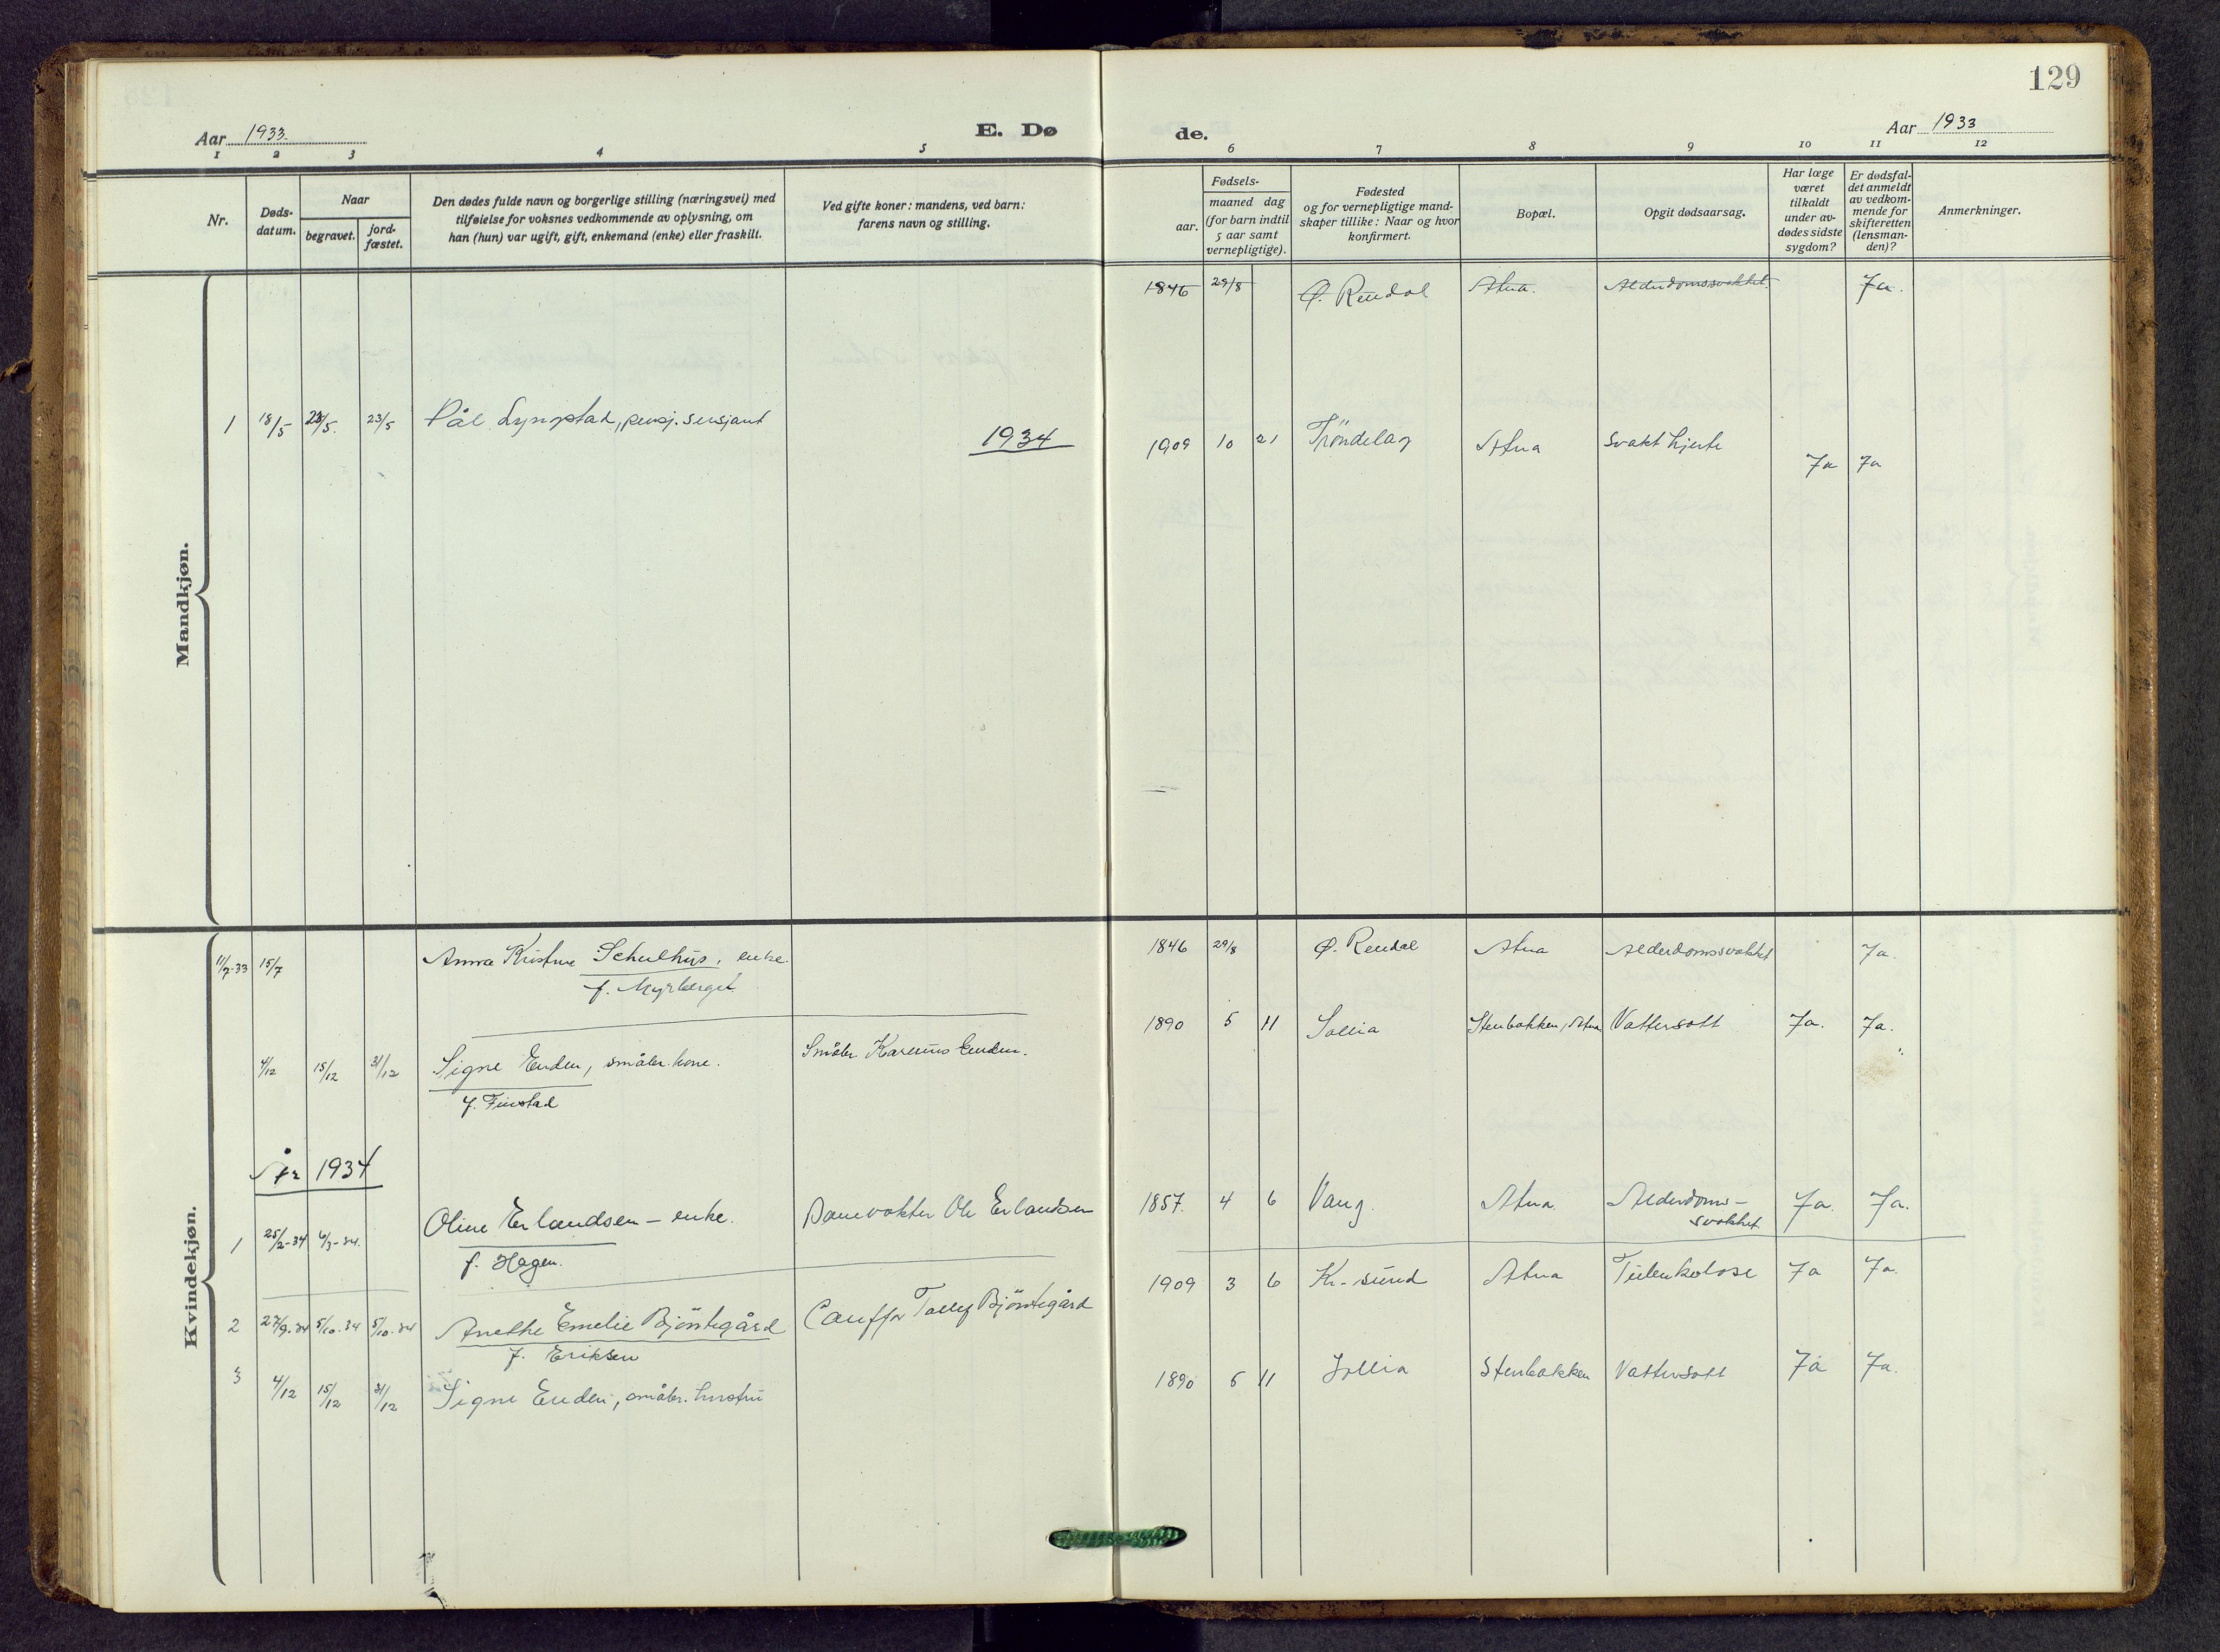 129
Aar 1933
E. Dø
de.
Aar 1933
1 2 3 4 5 6 7 8 9 10 11 12
Nr.
Døds-
datum.
Naar
begravet.
jord-
fæstet.
Den dødes fulde navn og borgerlige stilling (næringsvei) med
tilføielse for voksnes vedkommende av oplysning, om
han (hun) var ugift, gift, enkemand (enke) eller fraskilt.
Ved gifte koner: mandens, ved barn:
farens navn og stilling.
Fødsels-
aar.
maaned dag
(for barn indtil
5 aar samt
vernepligtige).
Fødested
og for vernepligtige mand-
skaper tillike: Naar og hvor
konfirmert.
Bopæl.
Opgit dødsaarsag.
Har læge
været
tilkaldt
under av-
dødes sidste
sygdom?
Er dødsfal-
det anmeldt
av vedkom-
mende for
skifteretten
(lensman-
den)?
Anmerkninger.
Mandkjøn.
1846 29/8 Ø. Rendal Atna. Alderdomssvakhet. Ja.
1934
1 18/5 23/5. 23/5 Pål Lyngstad, pensj. sersjant 1909 10 21 Tröndelag Atna svakt hjerte Ja Ja
Kvindekjøn.
11/7-33 15/7 Anna Kristine Schulhus, enke. 1846 29/8 Ø. Rendal Atna Alderdomssvakhet Ja.
f. Myrberget
4/12 15/12 31/12 Signe Enden, småbr. kone. Småbr. Karenus Enden. 1890 5 11 Sollia Stenbakken, Atna Vattersott Ja. Ja.
f. Finstad
År 1934
1 25/2-34 4/3-34. Oline Erlandsen - enke. Banevokter Ole Erlandsen 1857. 4 6 Vang. Atna. Alderdoms-
svakhet Ja. Ja.
f. Hagen.
2 27/9-34 5/10-34 5/10-34 Anethe Emelie Bjöntegård Cauffør Tollef Bjöntegård 1909 3 6 Kr-sund Atna Tuberkolose Ja Ja.
f. Eriksen
3 4/12 15/12 31/12 Signe Enden, småbr. hustru 1890 5 11 Sollia Stenbakken Vattersott Ja Ja.